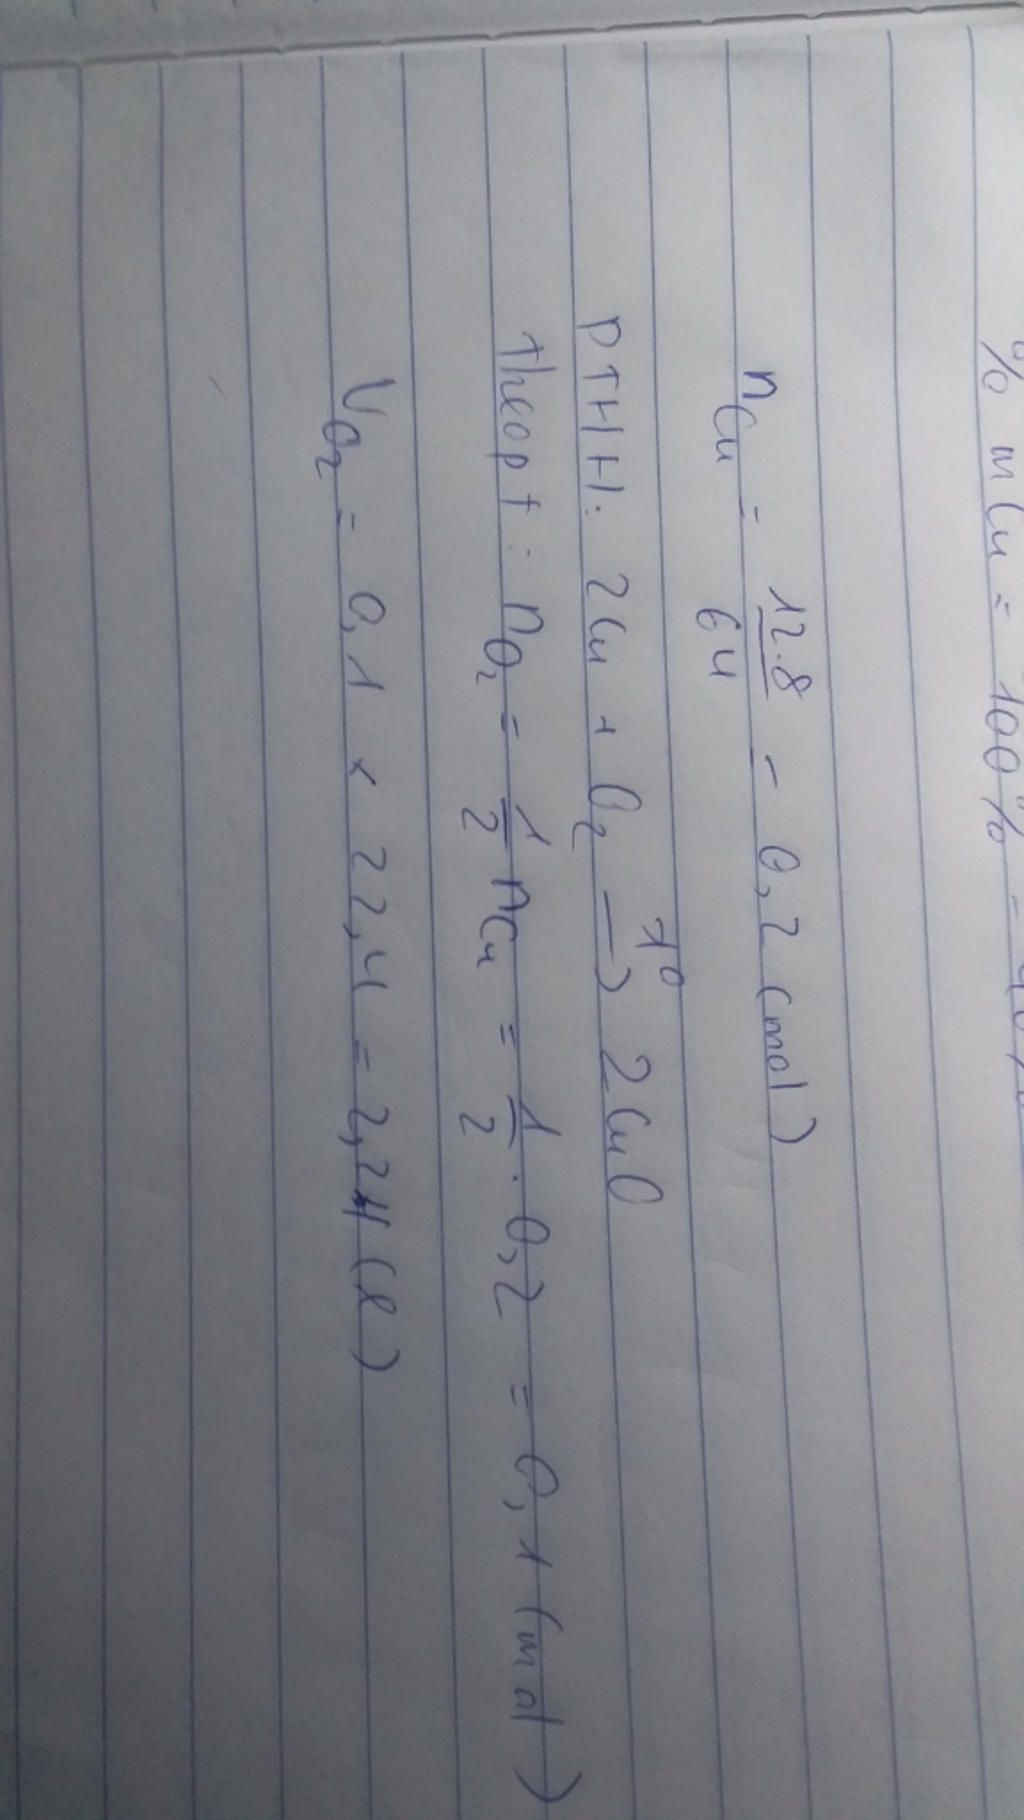 % mCu = 100% -
nCu = 12.8/64 = 0,2 (mol)
PTHH: 2Cu + O2 —t°→ 2CuO
theo pt : nO2 = 1/2 nCu = 1/2 . 0,2 = 0,1 (mol)
VO2 = 0,1 x 22,4 = 2,24 (l)